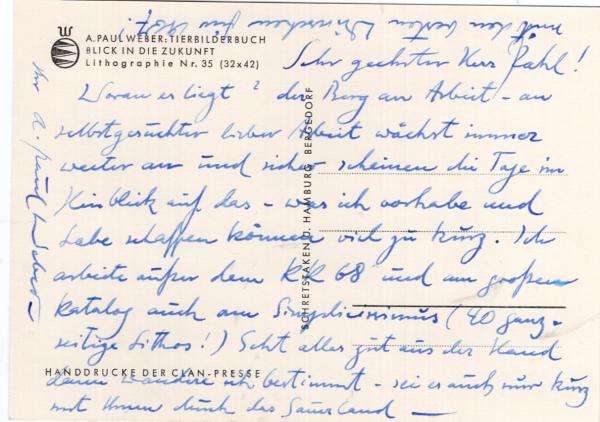 A. PAUL WEBER: TIERBILDERBUCH
BLICK IN DIE ZUKUNFT
Lithographie Nr. 35 (32x42)
Sehr geehrter Herr Pahl!
Woran es liegt? der Berg an Arbeit – an
selbstgesuchter lieber Arbeit wächst immer
weiter an und sicher scheinen die Tage im
Hinblick auf das – was ich vorhabe und
habe schaffen können viel zu kurz. Ich
arbeite außer dem KK 68 und am großen
Katalog auch am Simplicissimus (40 ganz-
seitige Lithos!) Geht alles gut aus der Hand
dann wandere ich bestimmt – sei es auch nur kurz
mit Ihnen durch das Sauerland –
mit den besten Wünschen für 1967!
Ihr A. Paul Weber –
HANDDRUCKE DER CLAN-PRESSE
SCHRETSTAKEN Ü. HAMBURG-BERGEDORF